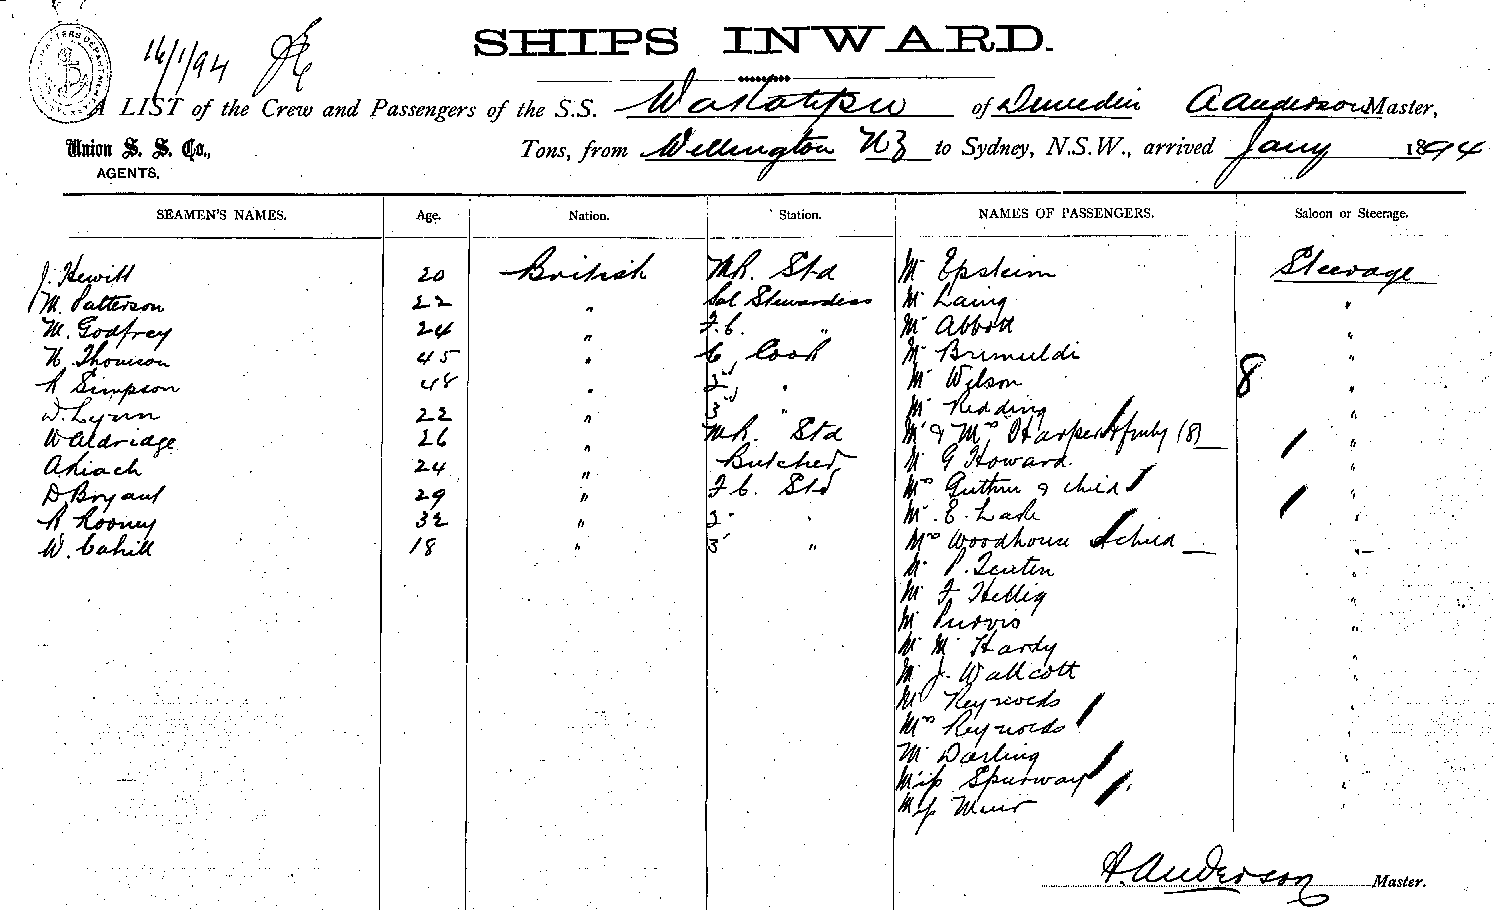 16/1/94
SHIPS INWARD.
A LIST of the Crew and Passengers of the S.S. Wakatipu of Dunedin A Anderson Master,
Union S. S. Co., Tons, from Wellington NZ to Sydney, N.S.W., arrived Jany 1894
AGENTS.
SEAMEN'S NAMES. Age. Nation. Station. NAMES OF PASSENGERS. Saloon or Steerage.
J. Hewitt 20 British MR. Std Mr Epstein Steerage
M. Patterson 22 " Sal Stewardess Mr Laing "
M. Godfrey 24 " F.C. " Mr Abbott "
N. Thomson 45 " C Cook Mr Brimuldi "
R Simpson 48 " 2d " Mr Wilson 8 "
D. Lynn 22 " 3d " Mr Redding "
W Aldridge 26 " MR. Std Mr & Mrs Harper & family (8) "
A Riach 24 " Butcher Mr G Howard "
D Bryant 29 " F.C. Std Mrs Guthrie & child "
R Rooney 32 " 2d " Mr E. Lake "
W. Cahill 18 " 3d " Mrs Woodhouse & child "
Mr P. "
Mr F Hellig "
Mr Purvis "
Mr M Hardy "
Mr J. Wallcott "
Mr Reynolds "
Mrs Reynolds "
Mr Darling "
Miss Spurway "
Miss Muir "
A. Anderson Master.